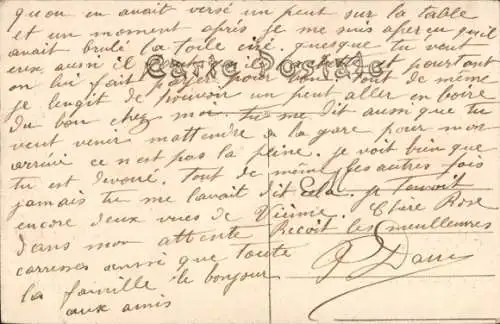 quon en avait versé un peut sur la table
et un moment après je me suis aperçu qu'il
avait brulé la toile ciré quesque tu veut
eux aussi il et pourtant
on lui fait payer pour bon tout de même
Carte Postale
je lengit de pouvoir un peut aller en boire
du bon chez moi. tu me dit aussi que tu
veut venir mattendre a la gare pour mon
arrivé ce n'est pas la peine. je voit bien que
tu est dévoué. Tout de même les autres fois
jamais tu me lavait dit cela. je tenvoit
encore deux vues de Chère Rose
dans mon attente Reçoit les meulleures
carresses ainsi que toute
la famille le bonjour
aux amis